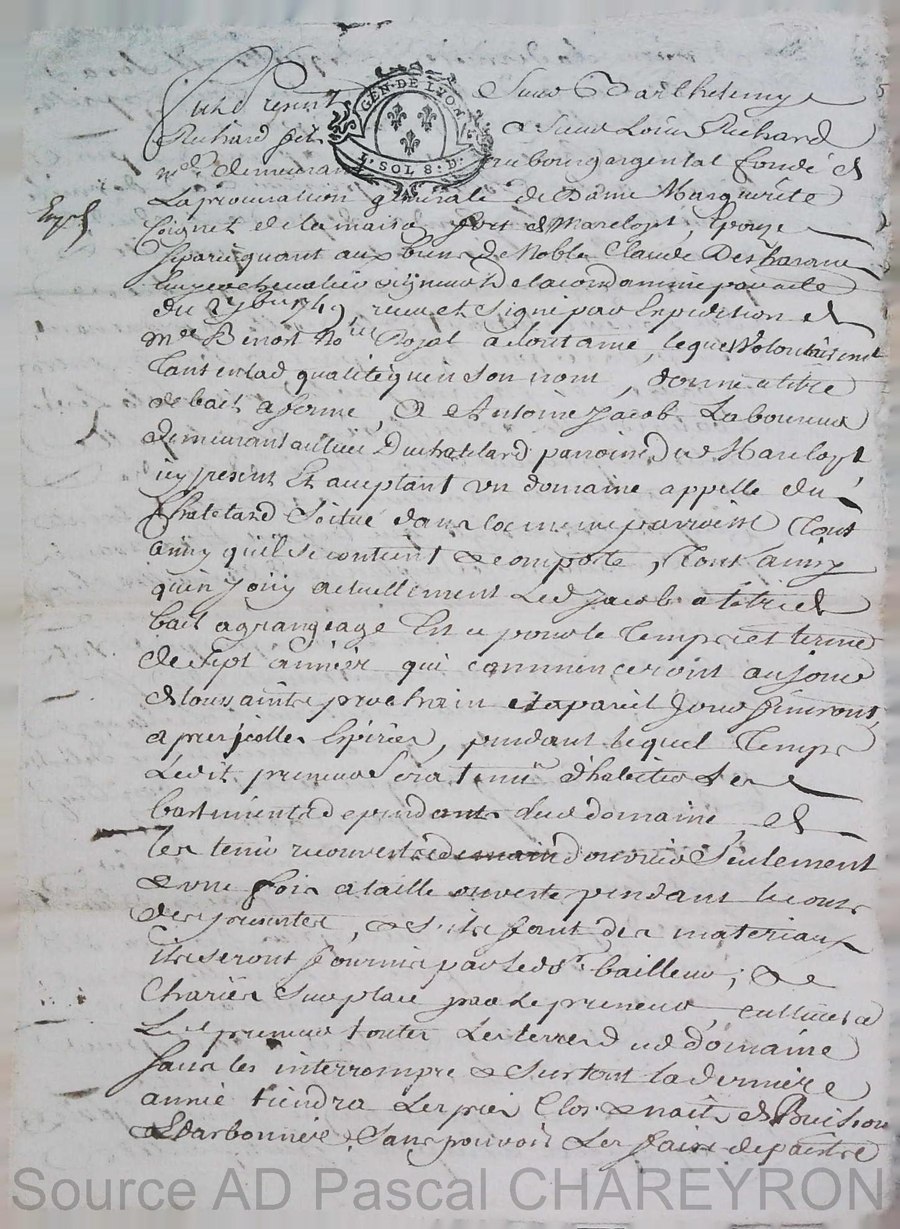 GEN·DE LYON
1·SOL 8·D·
fut present Sieur Barthelemy
Richard fils de Sieur Louis Richard
demeurant au bourgargental fondé de
La procuration generale de Dame Marguerite
de la maison fort de Marclopt, Epouse
separée quant aux biens de Noble Claude
Chevalier seigneur de la condamine passée
du 2 7bre 1749, receu et signé par Expedition de
me Benoit nore Royal , lequel volontairement
tant en lad qualité qu'en son nom, donne a titre
de bail a ferme, a Antoine Jacob Laboureur
demeurant au lieu Du chatelard parroisse du Marclopt
icy present Et acceptant un domaine appellé du
Chatelard scitué dans la meme parroisse tout
ainsy qu'il se contient & comporte, tout ainsy
qu'en jouy actuellement Led Jacob a titre de
bail a grangeage Et ce pour le temps et terme
de sept années qui commenceront au jour
de toussaints prochain et a pareil jour finiront,
apres jcelles Expirées, pendant lequel temps
Ledit preneur sera tenu d'habiter Les
battiments dependants dud domaine, et de
les tenir recouverts de main d'ouvrier Seulement
& une fois a taille ouverte pendant le cours
des presentes, & s'il faut des materiaux
ils seront fournis par led sr. bailleur; & de
Chariés sur place par Le preneur, cultivera
Led preneur toutes Les terres dud domaine
sans les interrompre & surtout la derniere
année tiendra Les prés Clos & naits de Buisson
& darbonnieres, Sans pouvoir Les faire depaitre
Source AD Pascal CHAREYRON